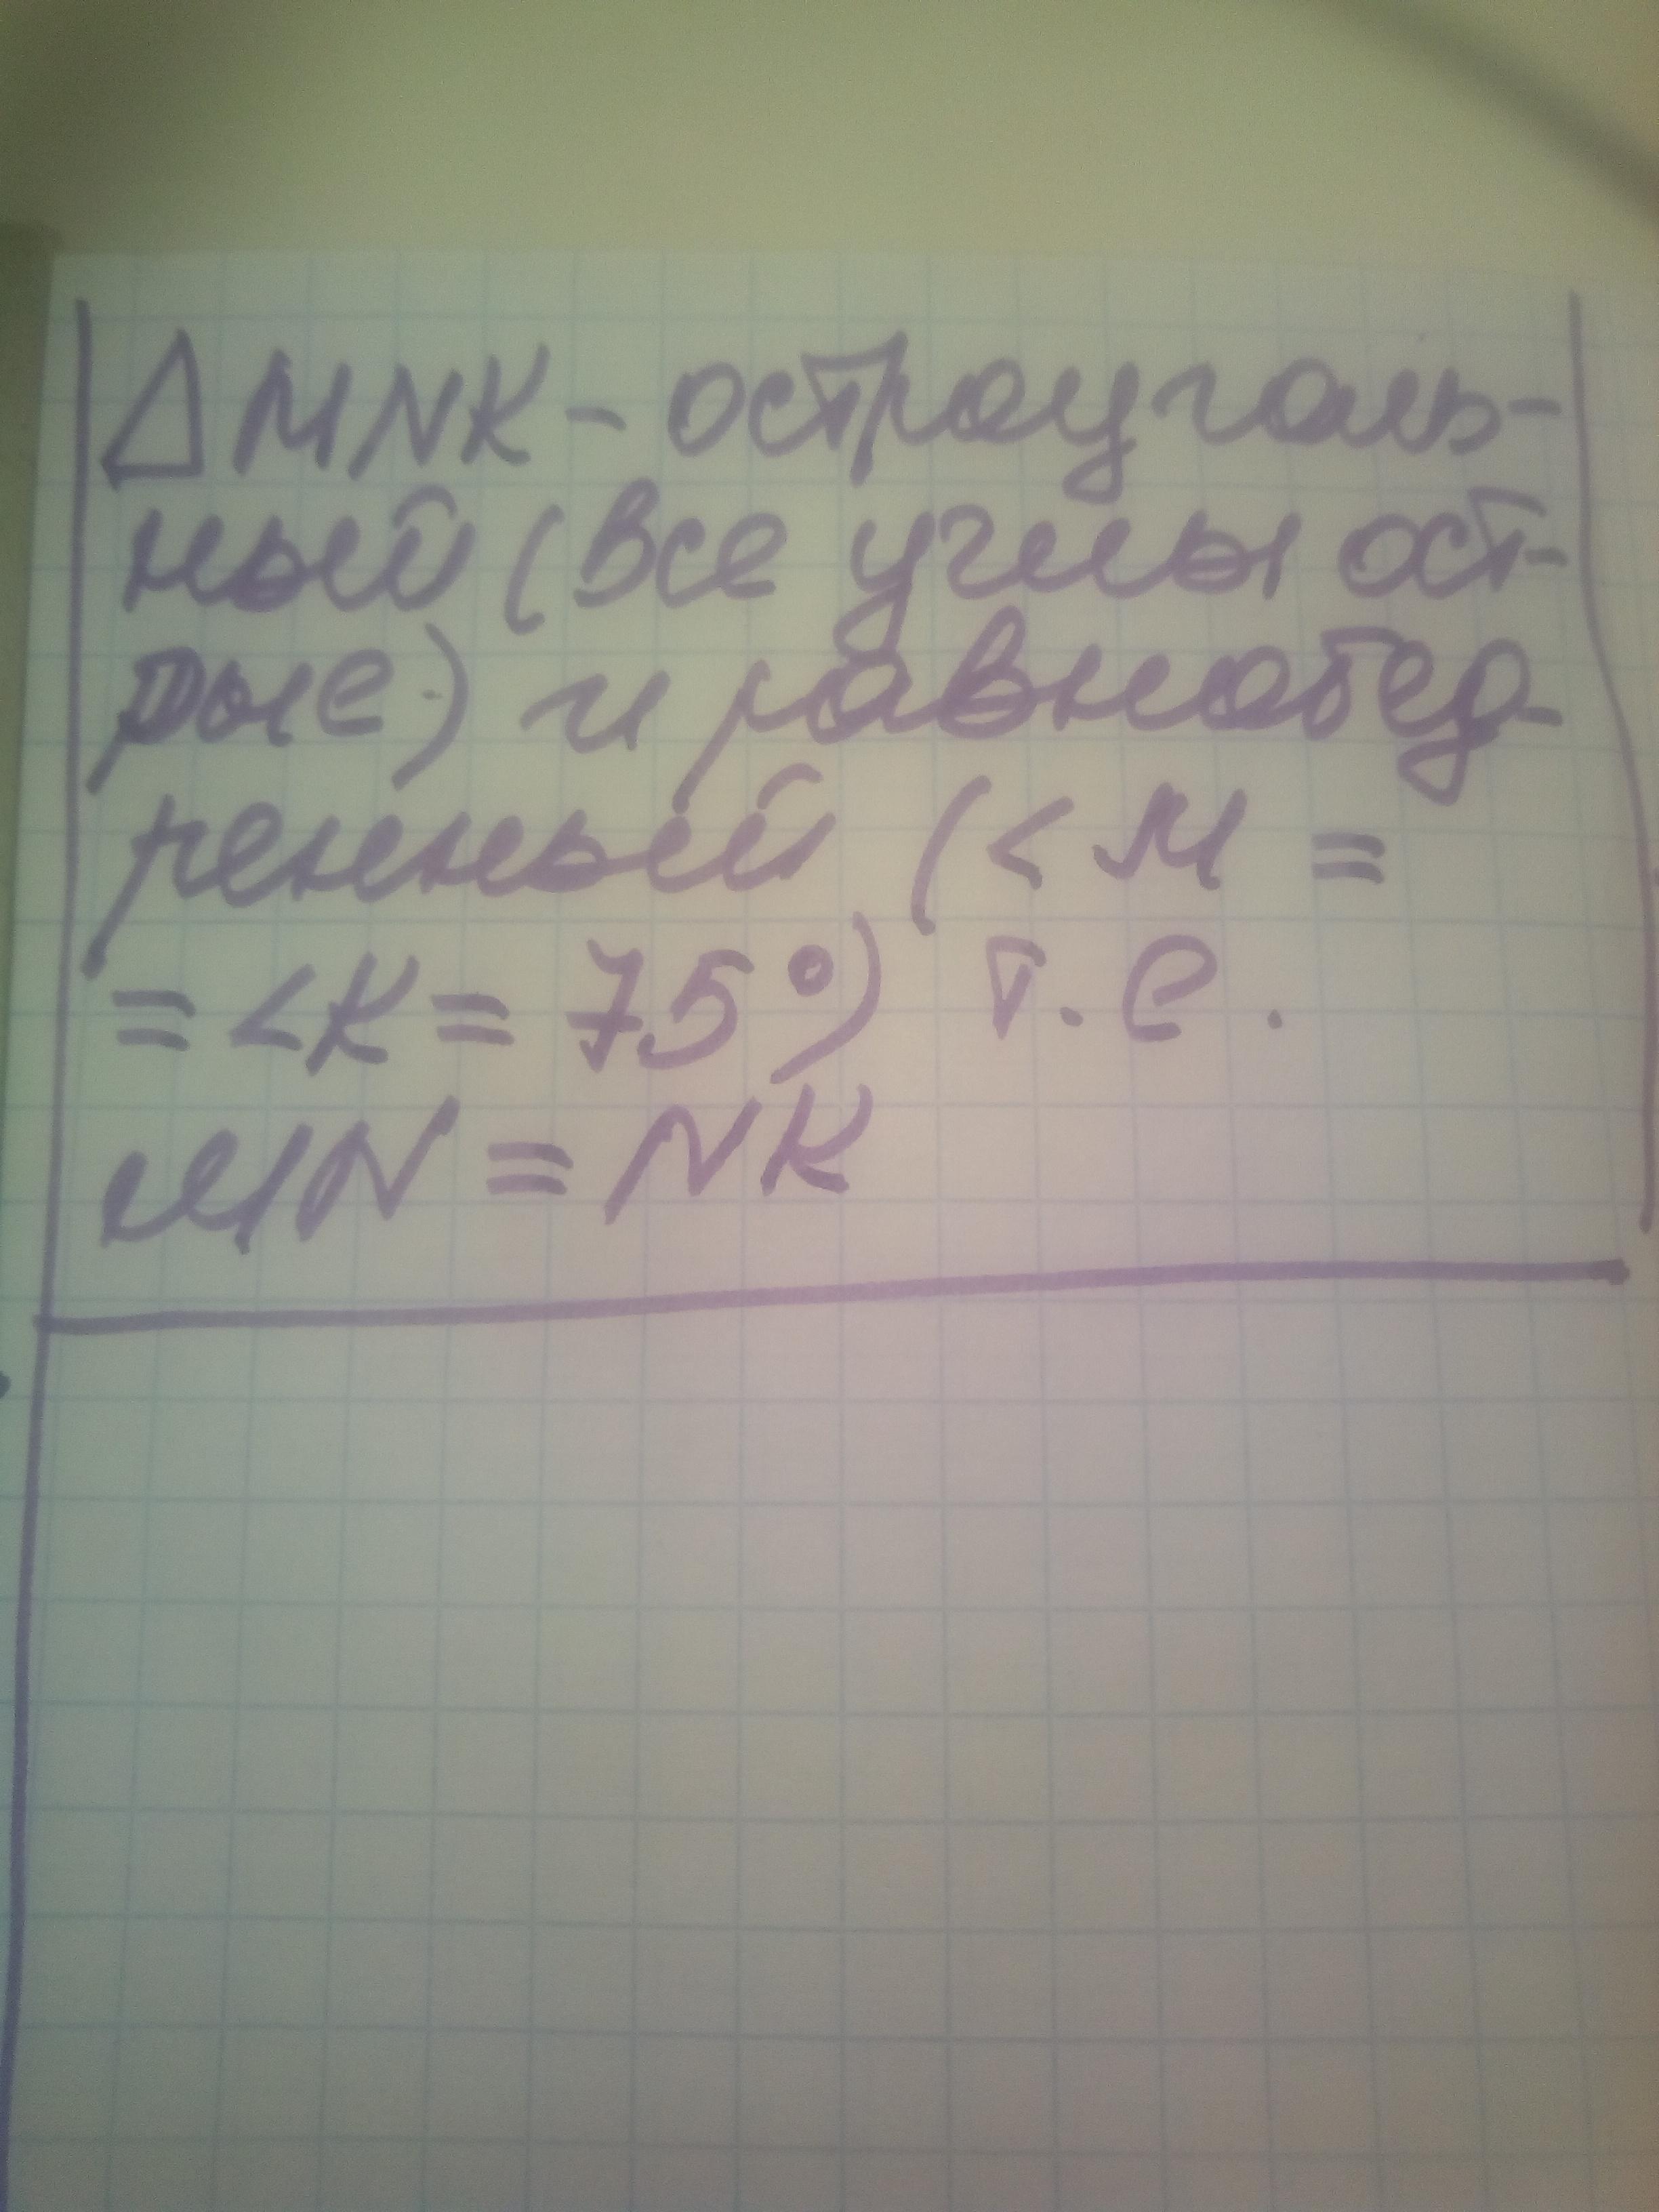 Δ MNK - остроуголь-
ный (все углы ост-
рые) и равнобед-
ренный (< M =
= < K = 75°) т.е.
MN = NK